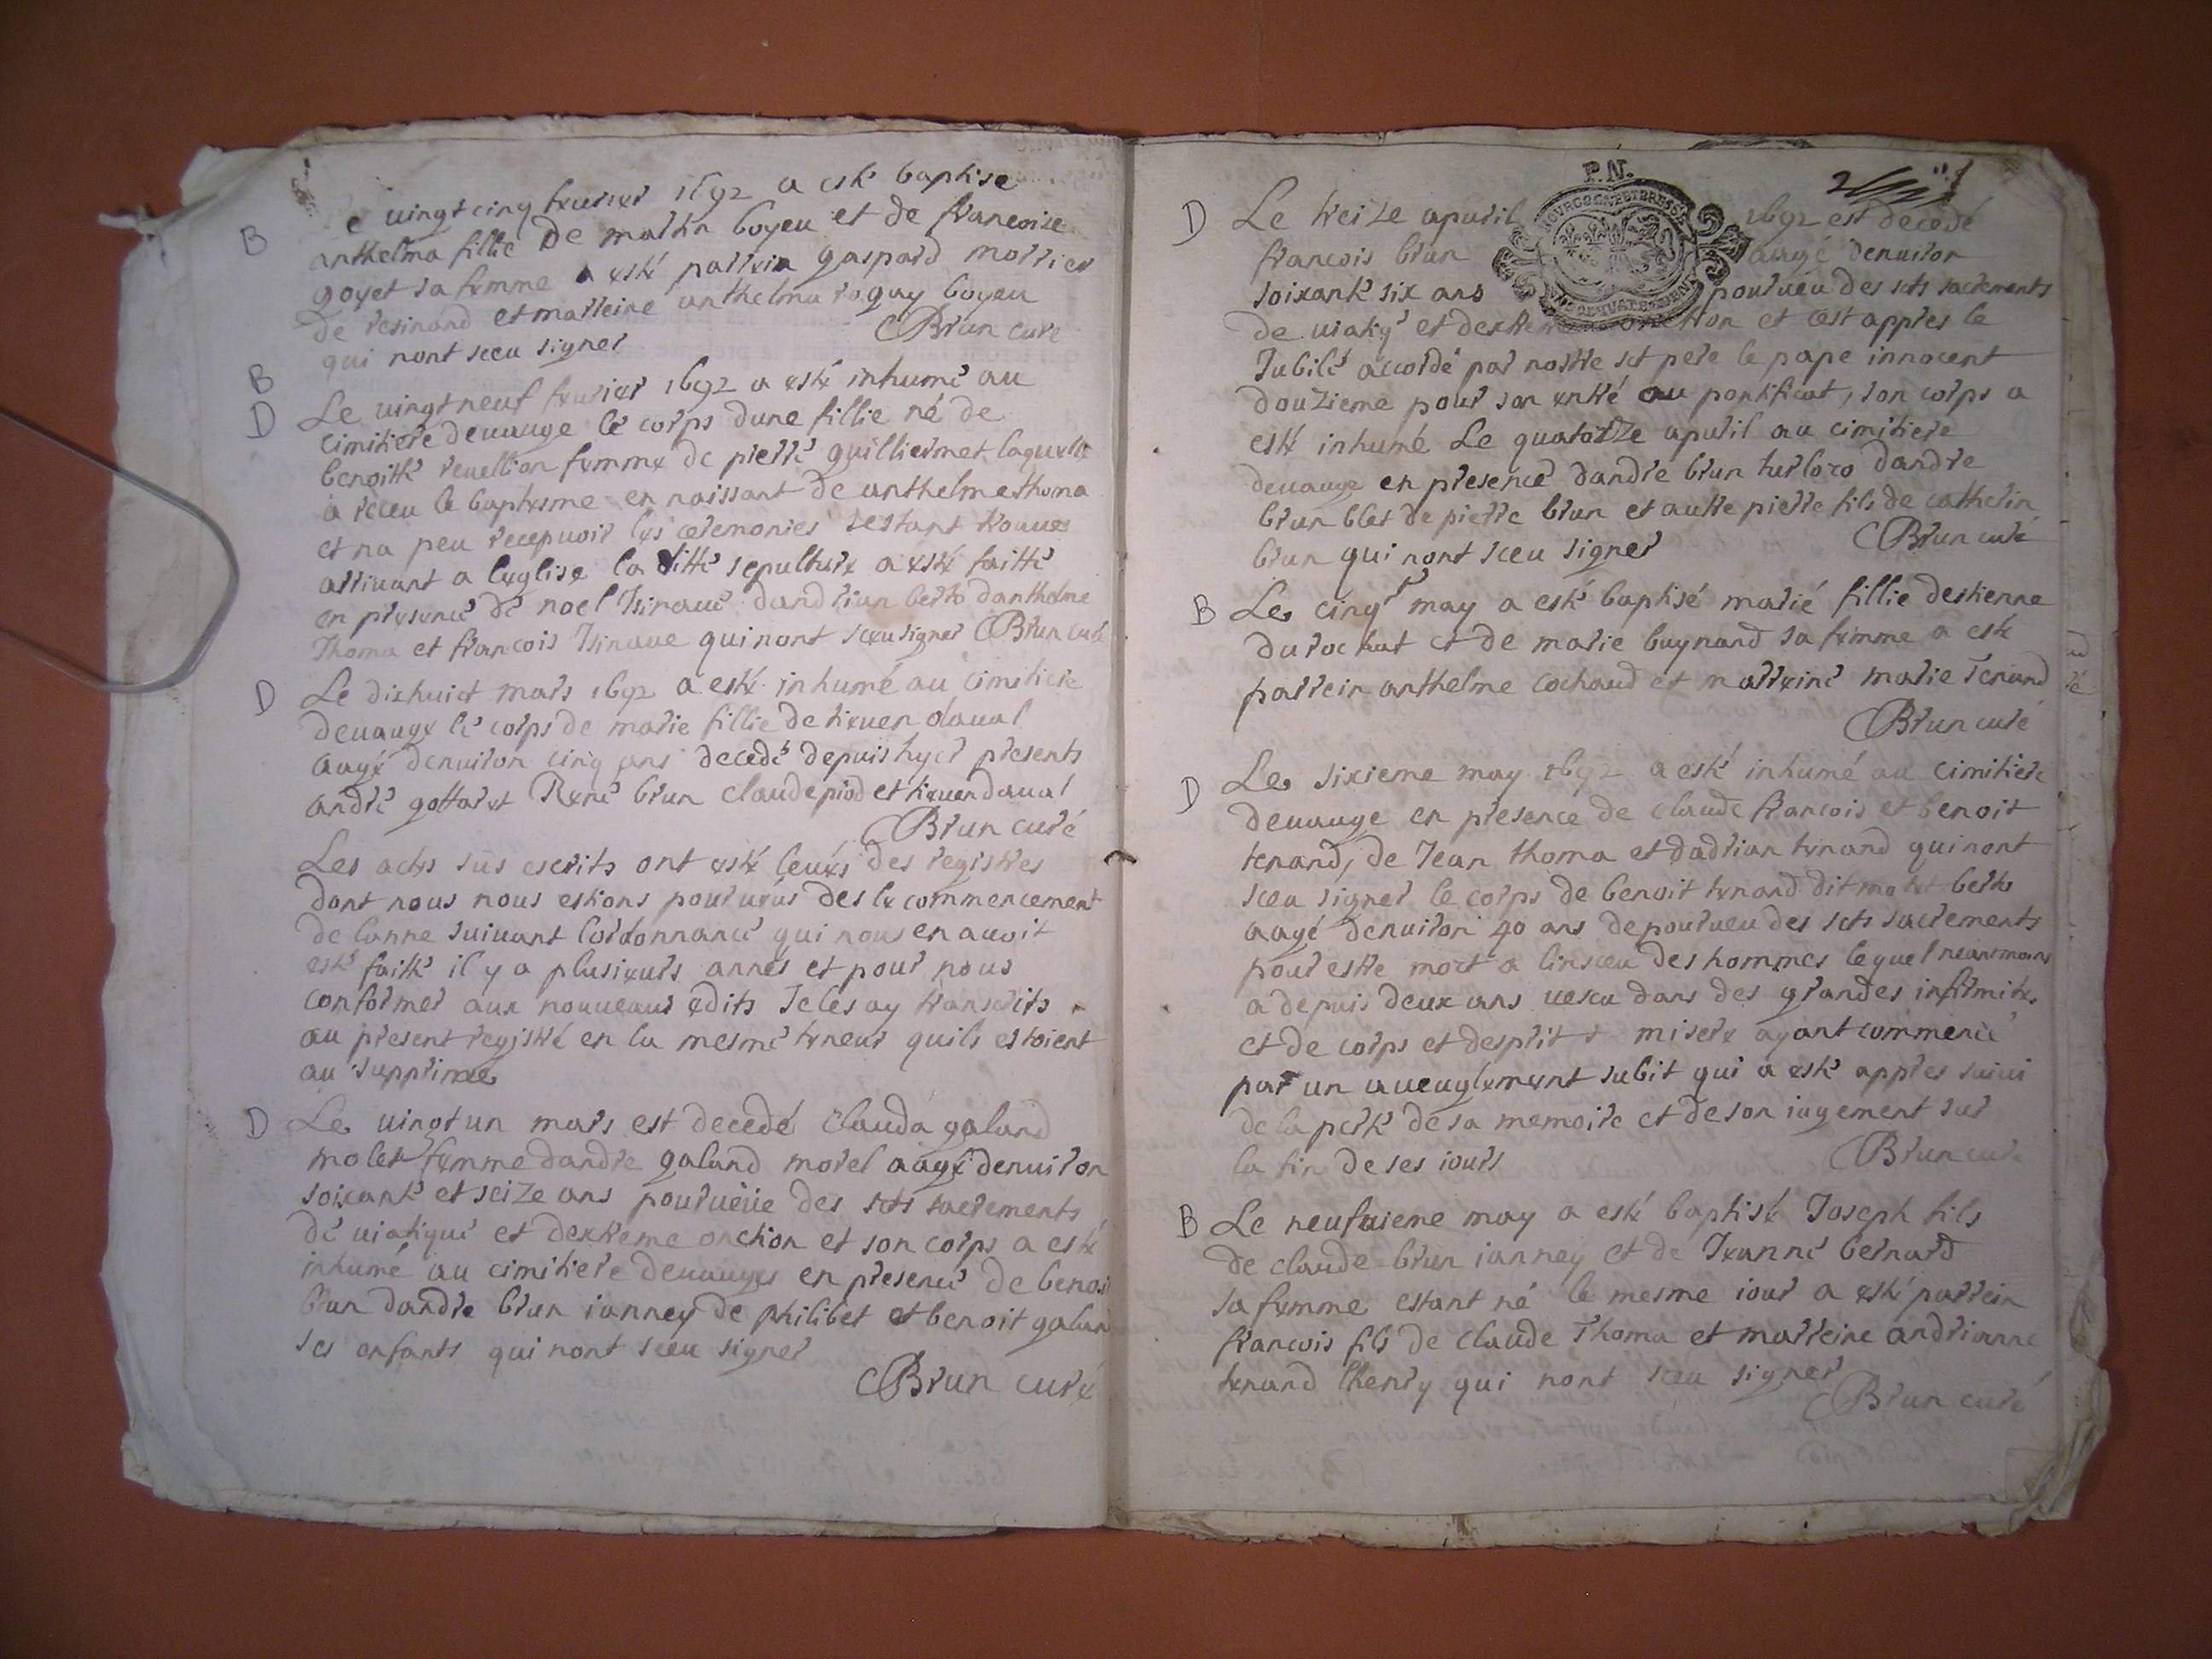 B
e uingt cinq feurier 1692 a esté baptise
anthelma fillie De matin boyeu et de francoise
goyet sa femme a esté parrein gaspard morrier
de resinand et marreine anthelma roguy boyeu
qui nont sceu signer Brun curé
B
D
Le uingt neuf feurier 1692 a esté inhumé au
cimitiere deuauge le corps dune fillie né de
benoitte reuellion femme de pierre guilliermet laquelle
a receu le baptesme en naissant de anthelme thoma
et na peu recepuoir les ceremonies sestant trouué
arriuant a leglise la ditte sepulture a esté faitte
en presence de noel Tsinaue dandrian berto danthelme
Thoma et francois Tsinaue qui nont sceu signer Brun curé
D
Le dixhuict mars 1692 a esté inhumé au cimitiere
deuauge le corps de marie fillie de tieuen daual
aagé denuiron cinq ans decedé depuis hyer presents
andré gottaret René brun claude piod et tieuen daual
Brun curé
Les actes sus escrits ont esté leués des registres
dont nous nous estions pourueus des le commencement
de lanne suiuant lordonnance qui nous en auoit
esté faitte il y a plusieurs annes et pour nous
conformer aux nouueaux edits Je les ay transcrits
au present registre en la mesme teneur quils estoient
au supprimee
D
Le uingt un mars est decedé Clauda galand
molet femme dandre galand morel aagé denuiron
soixante et seize ans pourueüe des sts sacrements
de uiatique et dextreme onction et son corps a esté
inhumé au cimitiere deuauges en presence de benoi
brun dandre brun ianney de philibet et benoit galan
ses enfants qui nont sceu signer
Brun curé
P.N.
D
Le treize apuril 1692 est decedé
francois brun aagé denuiron
soixante six ans pourueu des sts sacrements
de uiatiq et dextreme onction et cest appres le
Jubilé accordé par nostre st pere le pape innocent
douzieme pour son entré au pontificat, son corps a
esté inhumé Le quatorze apuril au cimitiere
deuauge en presence dandré brun turloro dandre
brun blet de pierre brun et autre pierre fils de catherin
brun qui nont sceu signer Brun curé
B
Les cinq may a esté baptisé marié fillie destienne
durochat et de marie buynand sa femme a esté
parrein anthelme cochaud et marreine marie Tenand
Brun curé
D
Les sixieme may 1692 a esté inhumé au cimitiere
deuauge en presence de claude francois et benoit
tenand, de Jean thoma et dadrian tenand qui nont
sceu signer le corps de benoit tenand dit motet berto
aagé denuiron 40 ans depourueu des sts sacrements
pour estre mort a linsceu des hommes lequel neantmoins
a depuis deux ans uescu dans des grandes infirmites
et de corps et desprit misere ayant commencé
par un aueuglement subit qui a esté appres suiui
de la perte de sa memoire et de son iugement sur
la fin de ses iours Brun curé
B
Le neufuieme may a esté baptisé Joseph fils
de claude brun ianney et de Jeanne bernard
sa femme estant né le mesme iour a esté parrein
francois fils de claude Thoma et marreine andrianne
tenand lhenry qui nont sceu signer
Brun curé